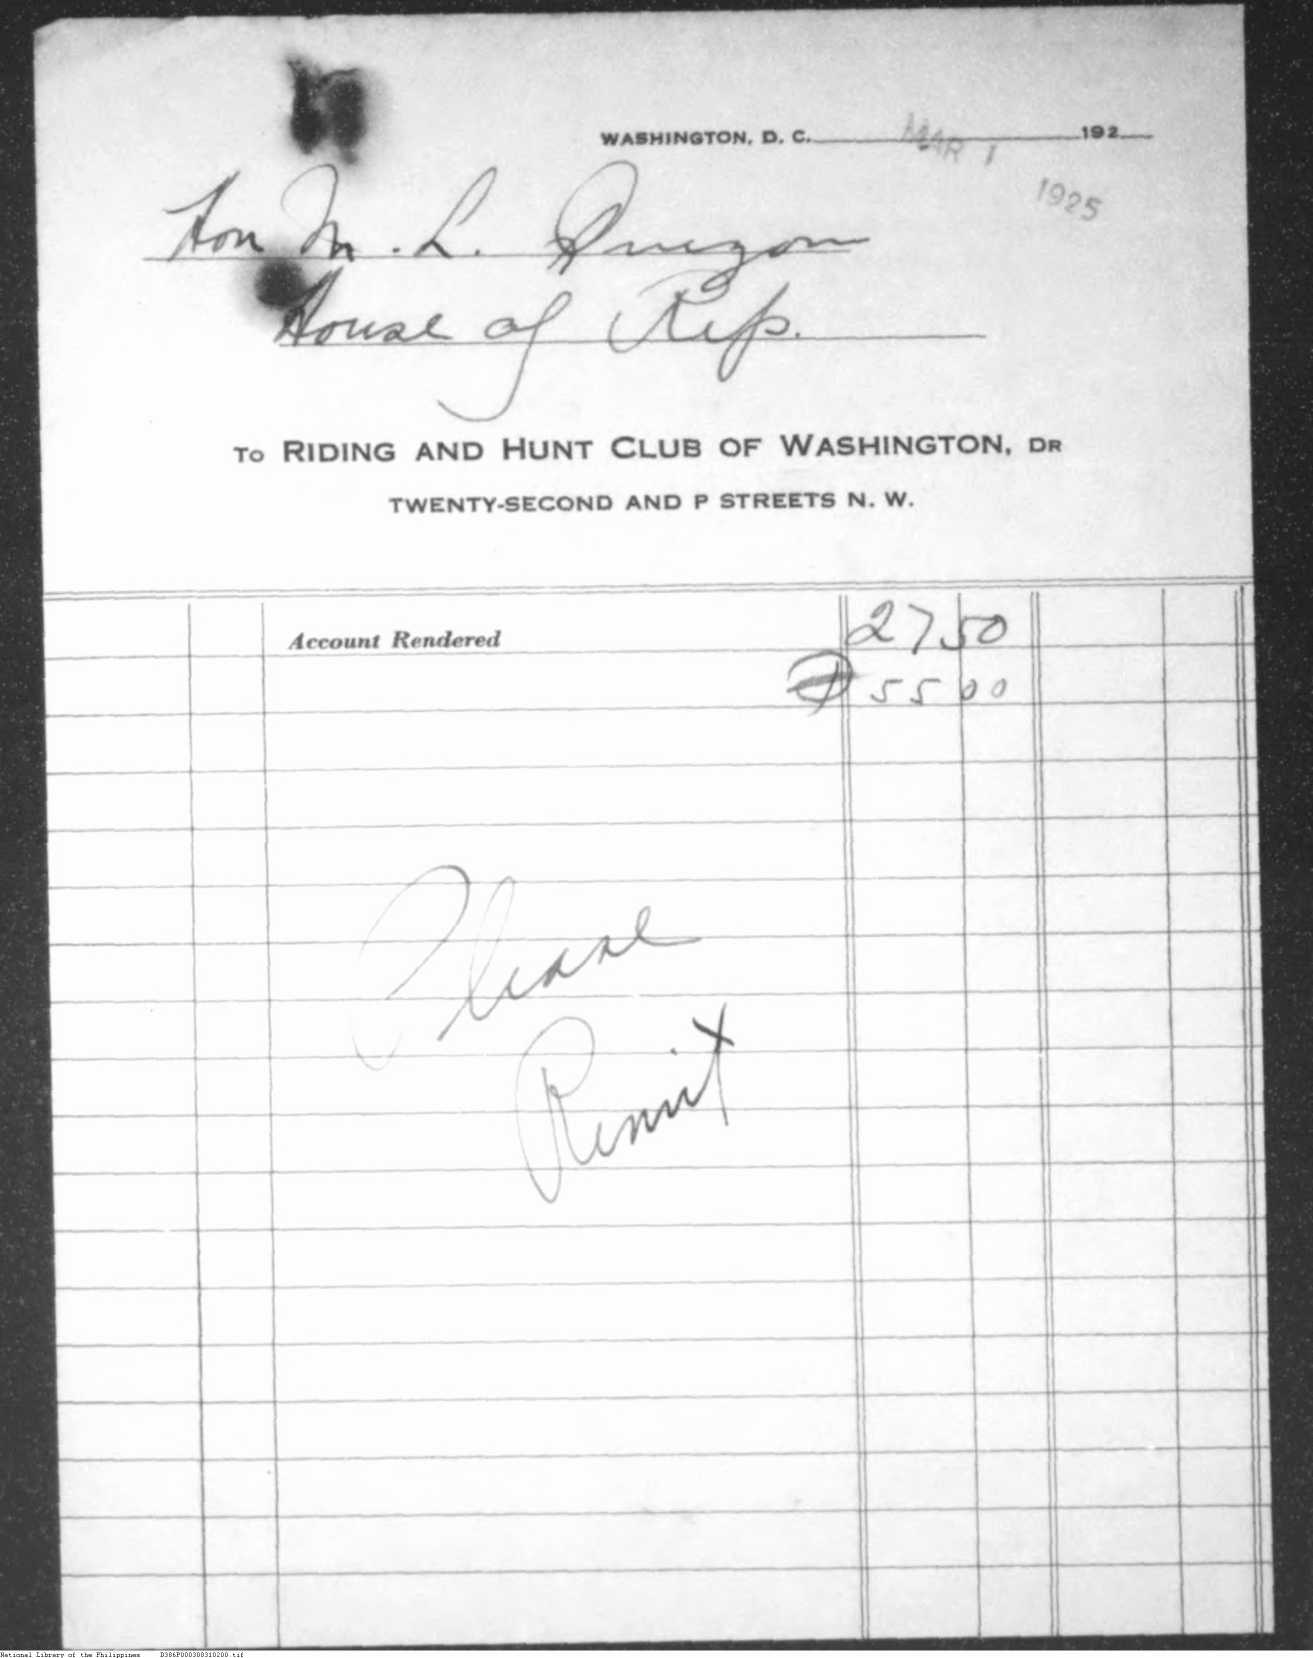 WASHINGTON, D. C. MAR 1 192
1925
Hon M. L. Quezon
House of Rep.
TO RIDING AND HUNT CLUB OF WASHINGTON, DR
TWENTY-SECOND AND P STREETS N. W.
Account Rendered 27 50
55 00
Please
Remit
National Library of the Philippines D386P000308310200.tif